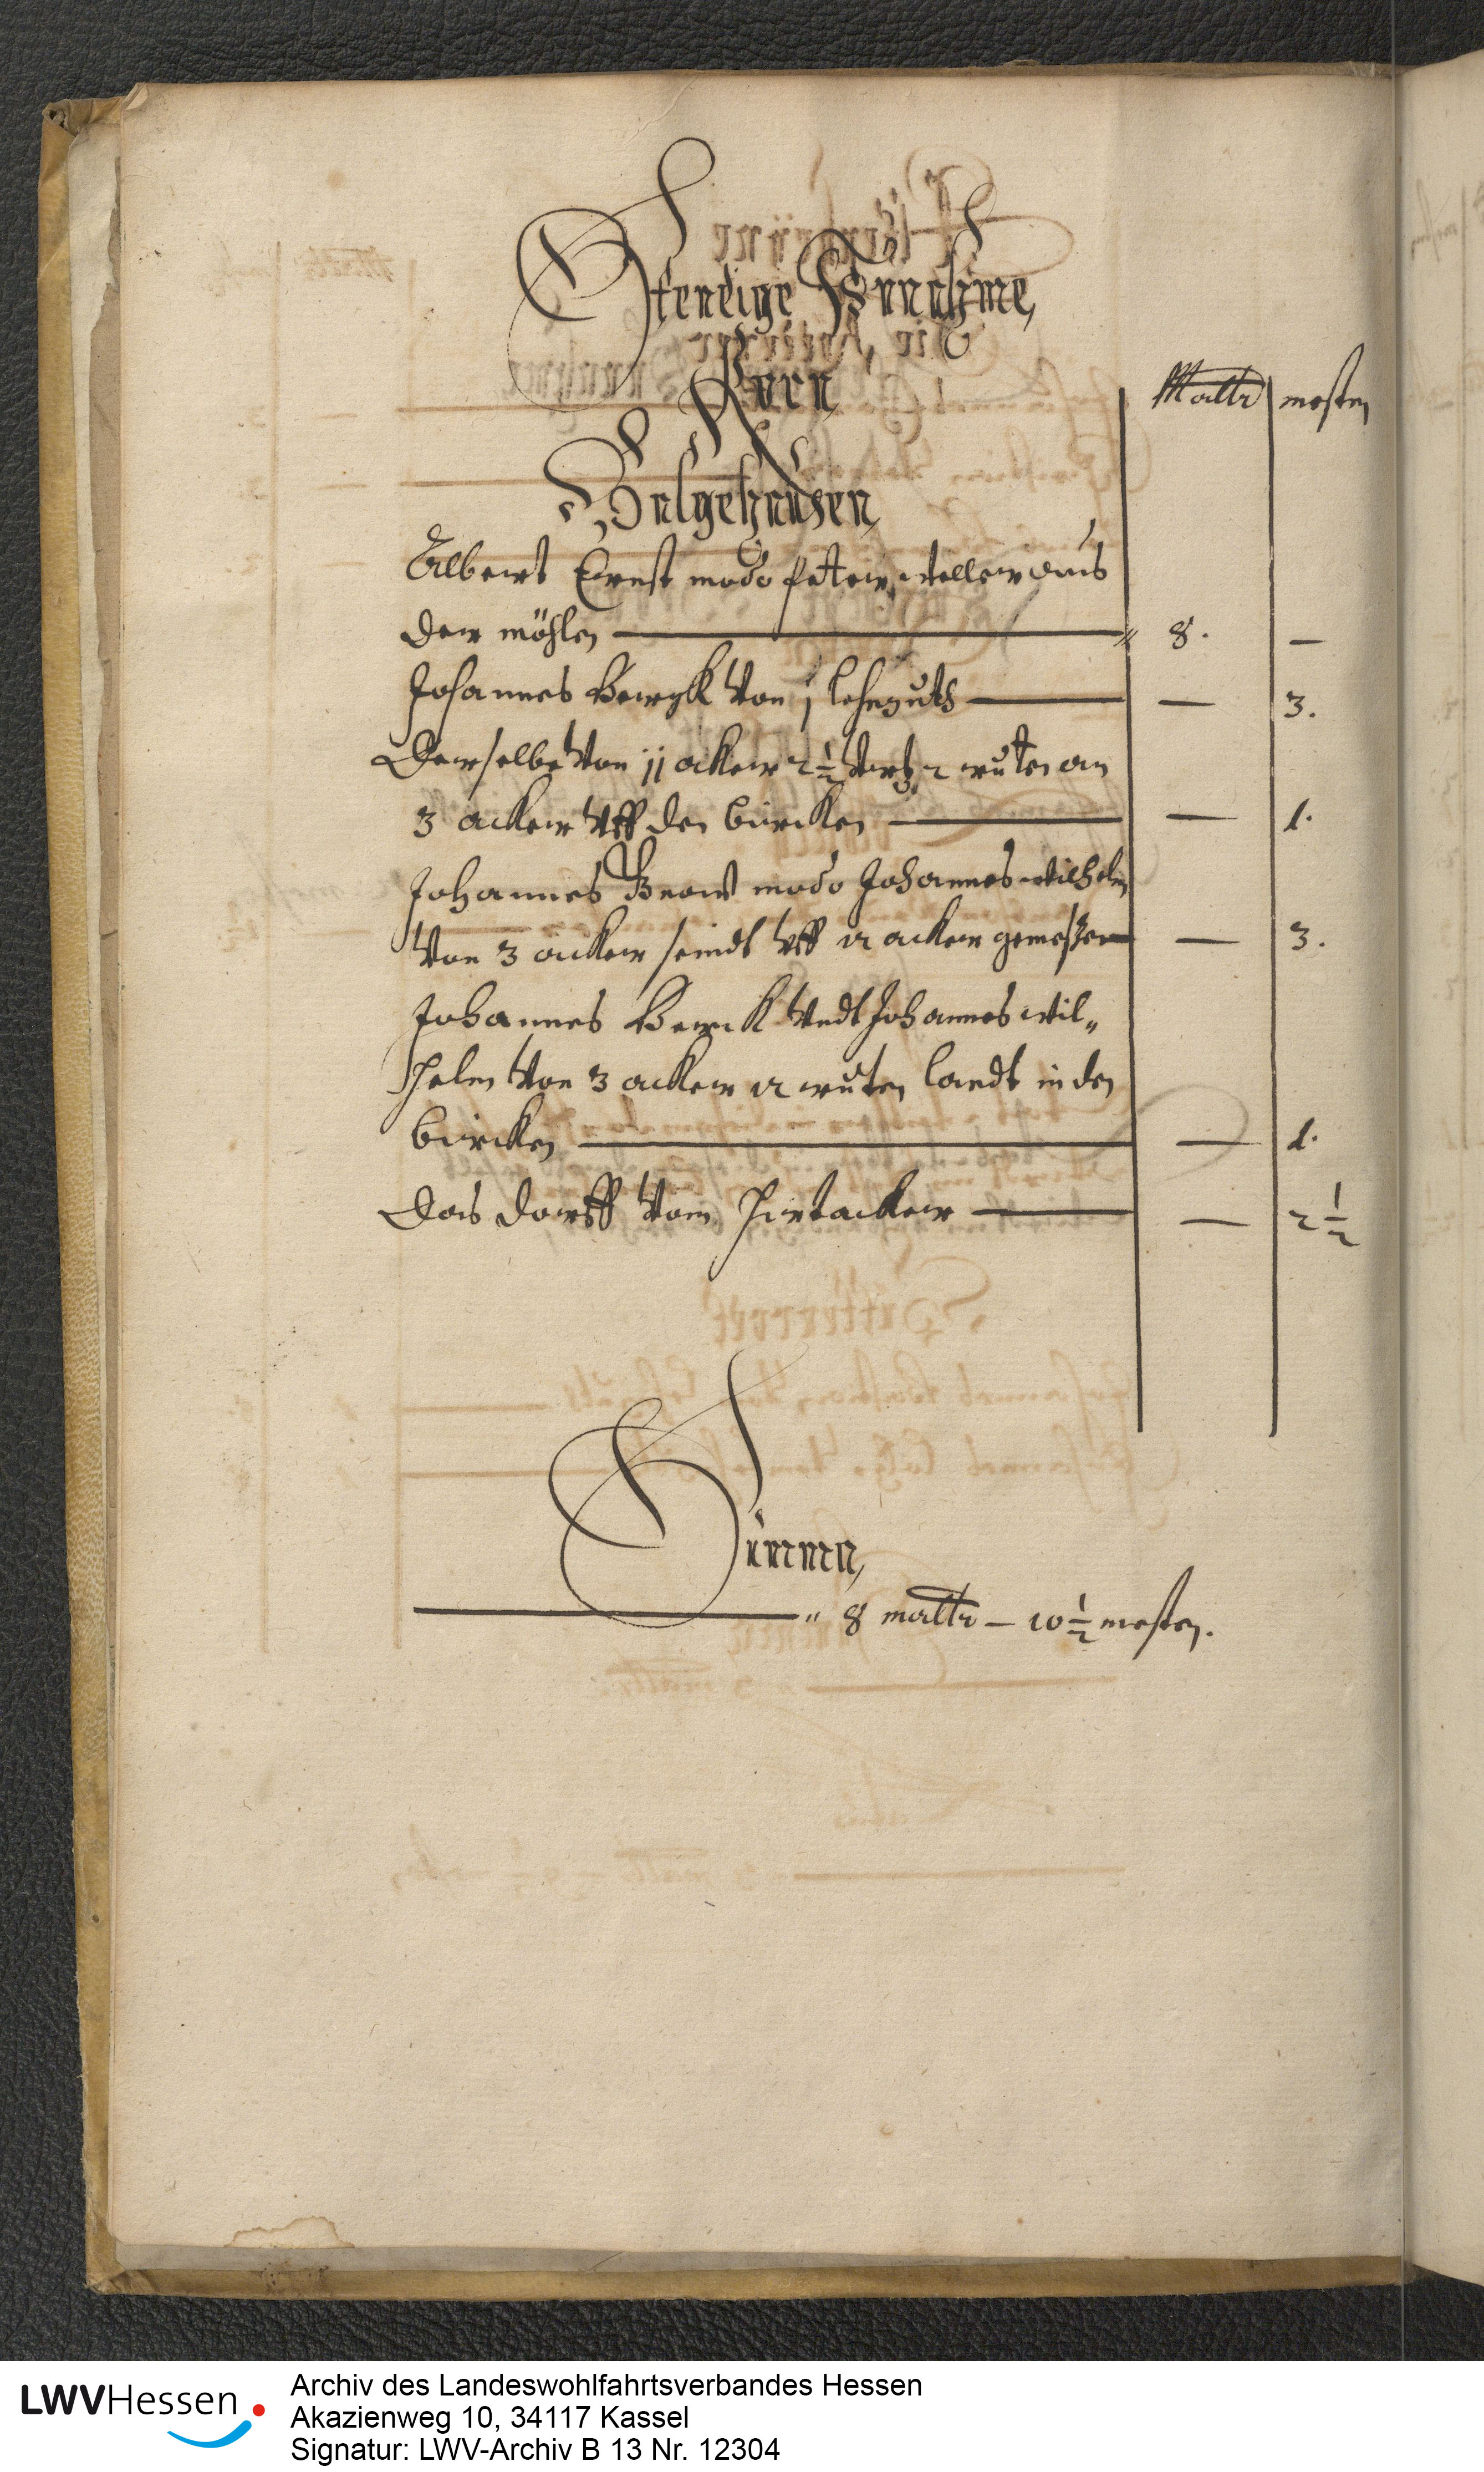 Stendige Innahme,
Korn
Maltr mesten
Balgehausen,
Albert Ernst modo peter weller aus
der möhlen 8. —
Johannes Bergk Von j lehngutt — 3.
Derselbe Von jj acker 2 1/2 vertz 2 ruten an
3 acker Vff den bircken — 1.
Johannes modo Johannes wilhelm
Von 3 acker seindt Vff 12 acker gemeßen — 3.
Johannes Berck Vndt Johannes wil„
helm Von 3 acker 12 ruten landt in den
bircken — 1.
Das dorff Vom Hirtacker — 2 1/2
Summa,
„ 8 maltr — 10 1/2 mesten.
LWVHessen
Archiv des Landeswohlfahrtsverbandes Hessen
Akazienweg 10, 34117 Kassel
Signatur: LWV-Archiv B 13 Nr. 12304